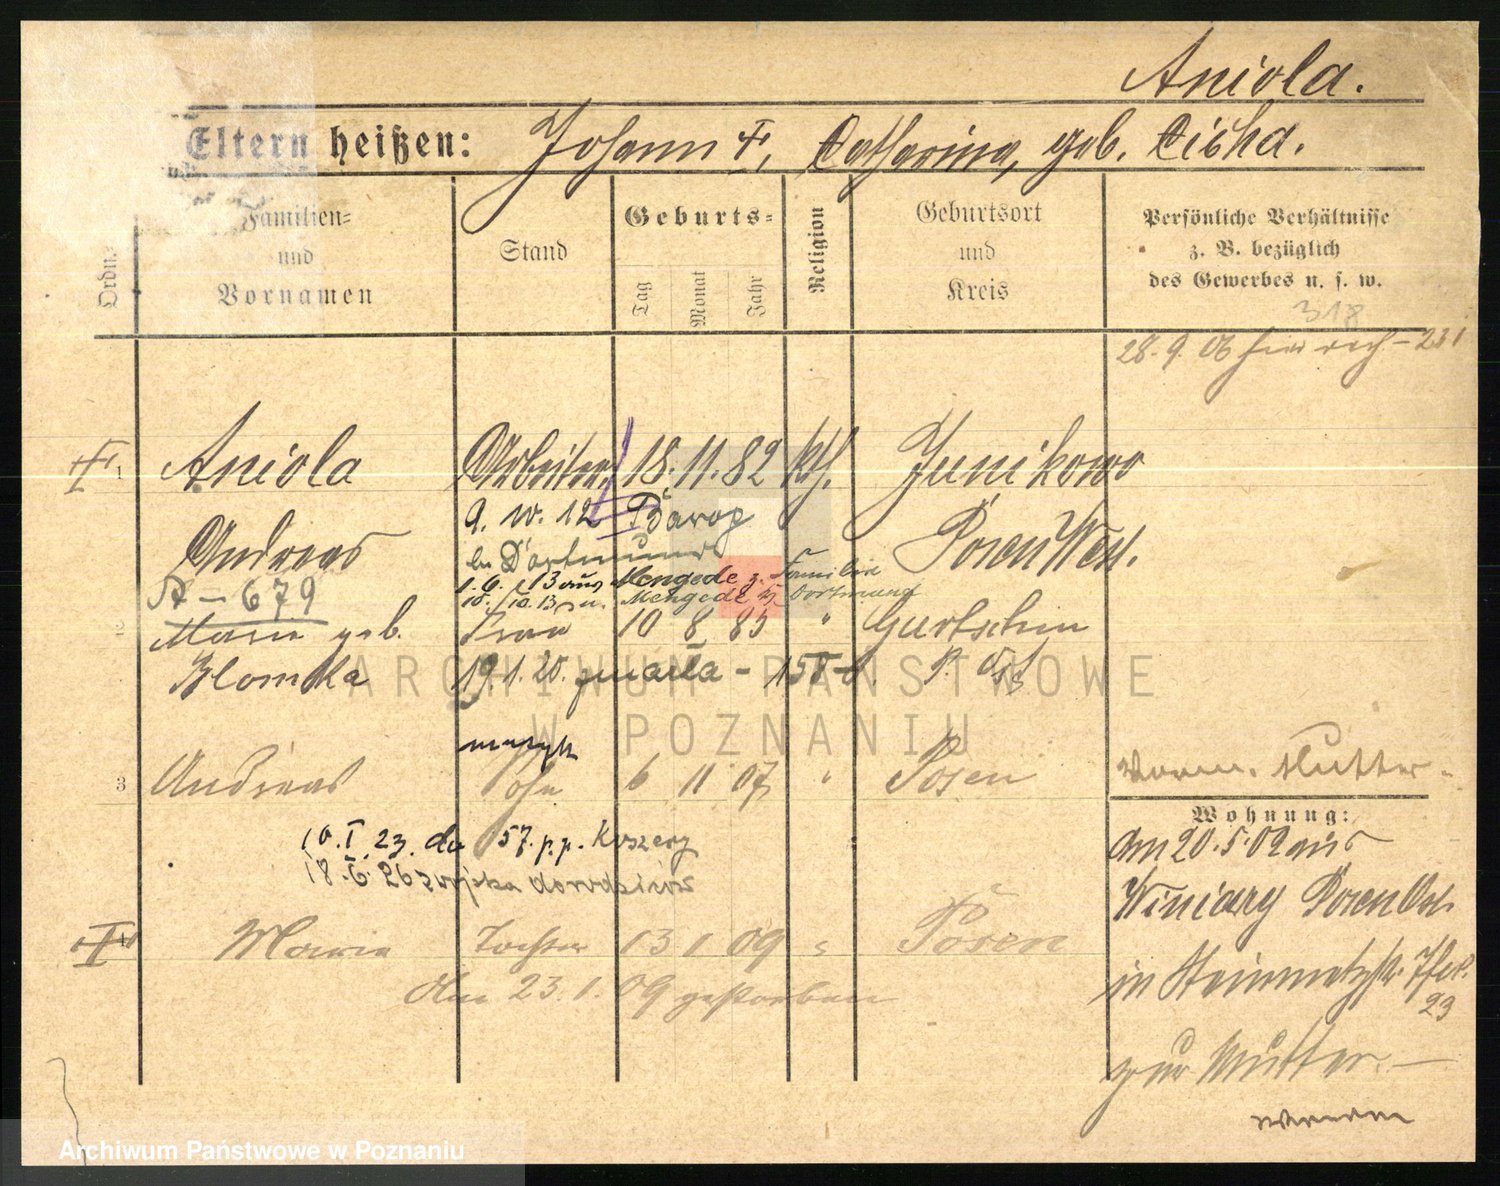 Aniola.
Eltern heißen: Johann †, Catharina, geb. Cicha.
Ordn.
Familien=
und
Vornamen
Stand
Geburts=
Tag
Monat
Jahr
Religion
Geburtsort
und
Kreis
Persönliche Verhältnisse
z. B. bezüglich
des Gewerbes u. s. w.
318
28.9.06 231
1 Aniola Arbeiter 18. 11. 82 kth. Junikowo
Andreas 9. 10. 12 Barop Posen West.
b. Dortmund
A - 679 1. 6. 13 aus Mengede z. Familie
10. 10. 13 n. Mengede b/ Dortmund
Marie geb. Frau 10 8 85 " Gurtschin
Blomka 19. 1. 20. zmarła - 158 P. Ost
3 Andreas Sohn 6 11 07 " Posen
10. I. 23. do 57. p. p. Koszery
18. 6. 26 z wojska
Marie Tochter 13 1 09 " Posen
den 23. 1. 09 gestorben
Mutter.
Wohnung:
den 20. 5. 02 aus
Winiary Posen Ost
in Steinmetzstr.
23
zur Mutter. -
Archiwum Państwowe w Poznaniu
ARCHIWUM PAŃSTWOWE
W POZNANIU